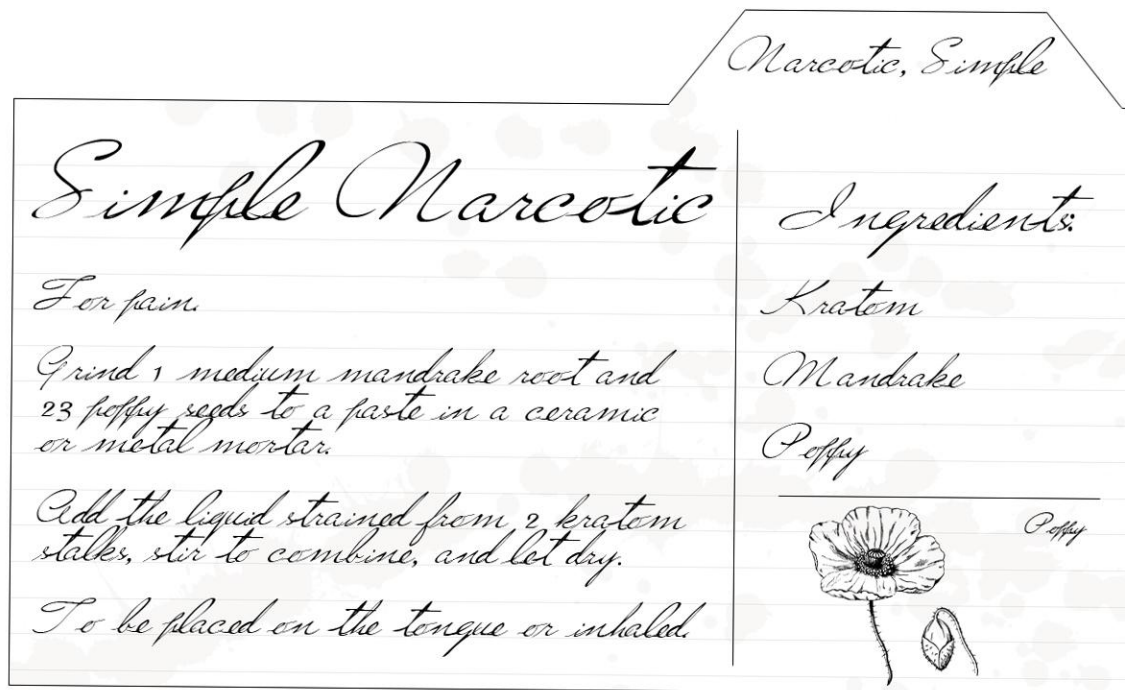 Narcotic, Simple
Simple Narcotic
For pain.
Grind 1 medium mandrake root and
23 poppy seeds to a paste in a ceramic
or metal mortar.
Add the liquid strained from 2 kratom
stalks, stir to combine, and let dry.
To be placed on the tongue or inhaled.
Ingredients:
Kratom
Mandrake
Poppy
Poppy